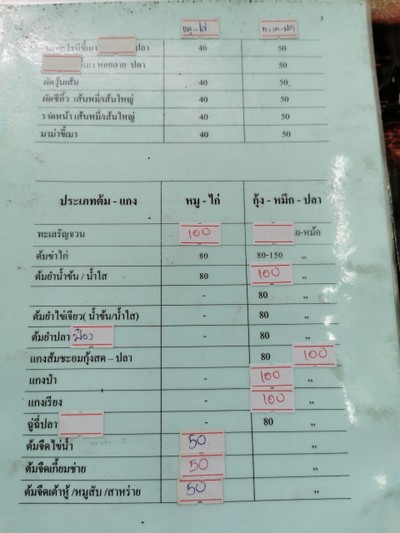 3
หมู - ไก่
ปลา 40 50
หอยลาย ปลา 50
ผัดวุ้นเส้น 40 50
ผัดซีอิ๊ว เส้นหมี่/เส้นใหญ่ 40 50
ราดหน้า เส้นหมี่/เส้นใหญ่ 40 50
มาม่าขี้เมา 40 50
ประเภทต้ม - แกง หมู - ไก่ กุ้ง - หมึก - ปลา
ทะเลรัญจวน 100 -หม้อ
ต้มข่าไก่ 80 80-150 ,,
ต้มยำน้ำข้น / น้ำใส 80 100 ,,
- 80 ,,
ต้มยำไข่เจียว( น้ำข้น/น้ำใส) - 80 ,,
ต้มยำปลา - 80 ,,
แกงส้มชะอมกุ้งสด – ปลา - 80 100
แกงป่า - 100 ,,
แกงเรียง - 100 ,,
ฉู่ฉี่ปลา - 80 ,,
ต้มจืดไข่น้ำ 50 ,,
ต้มจืดเกี้ยมช่าย 50 ,,
ต้มจืดเต้าหู้ /หมูสับ /สาหร่าย 50 ,,